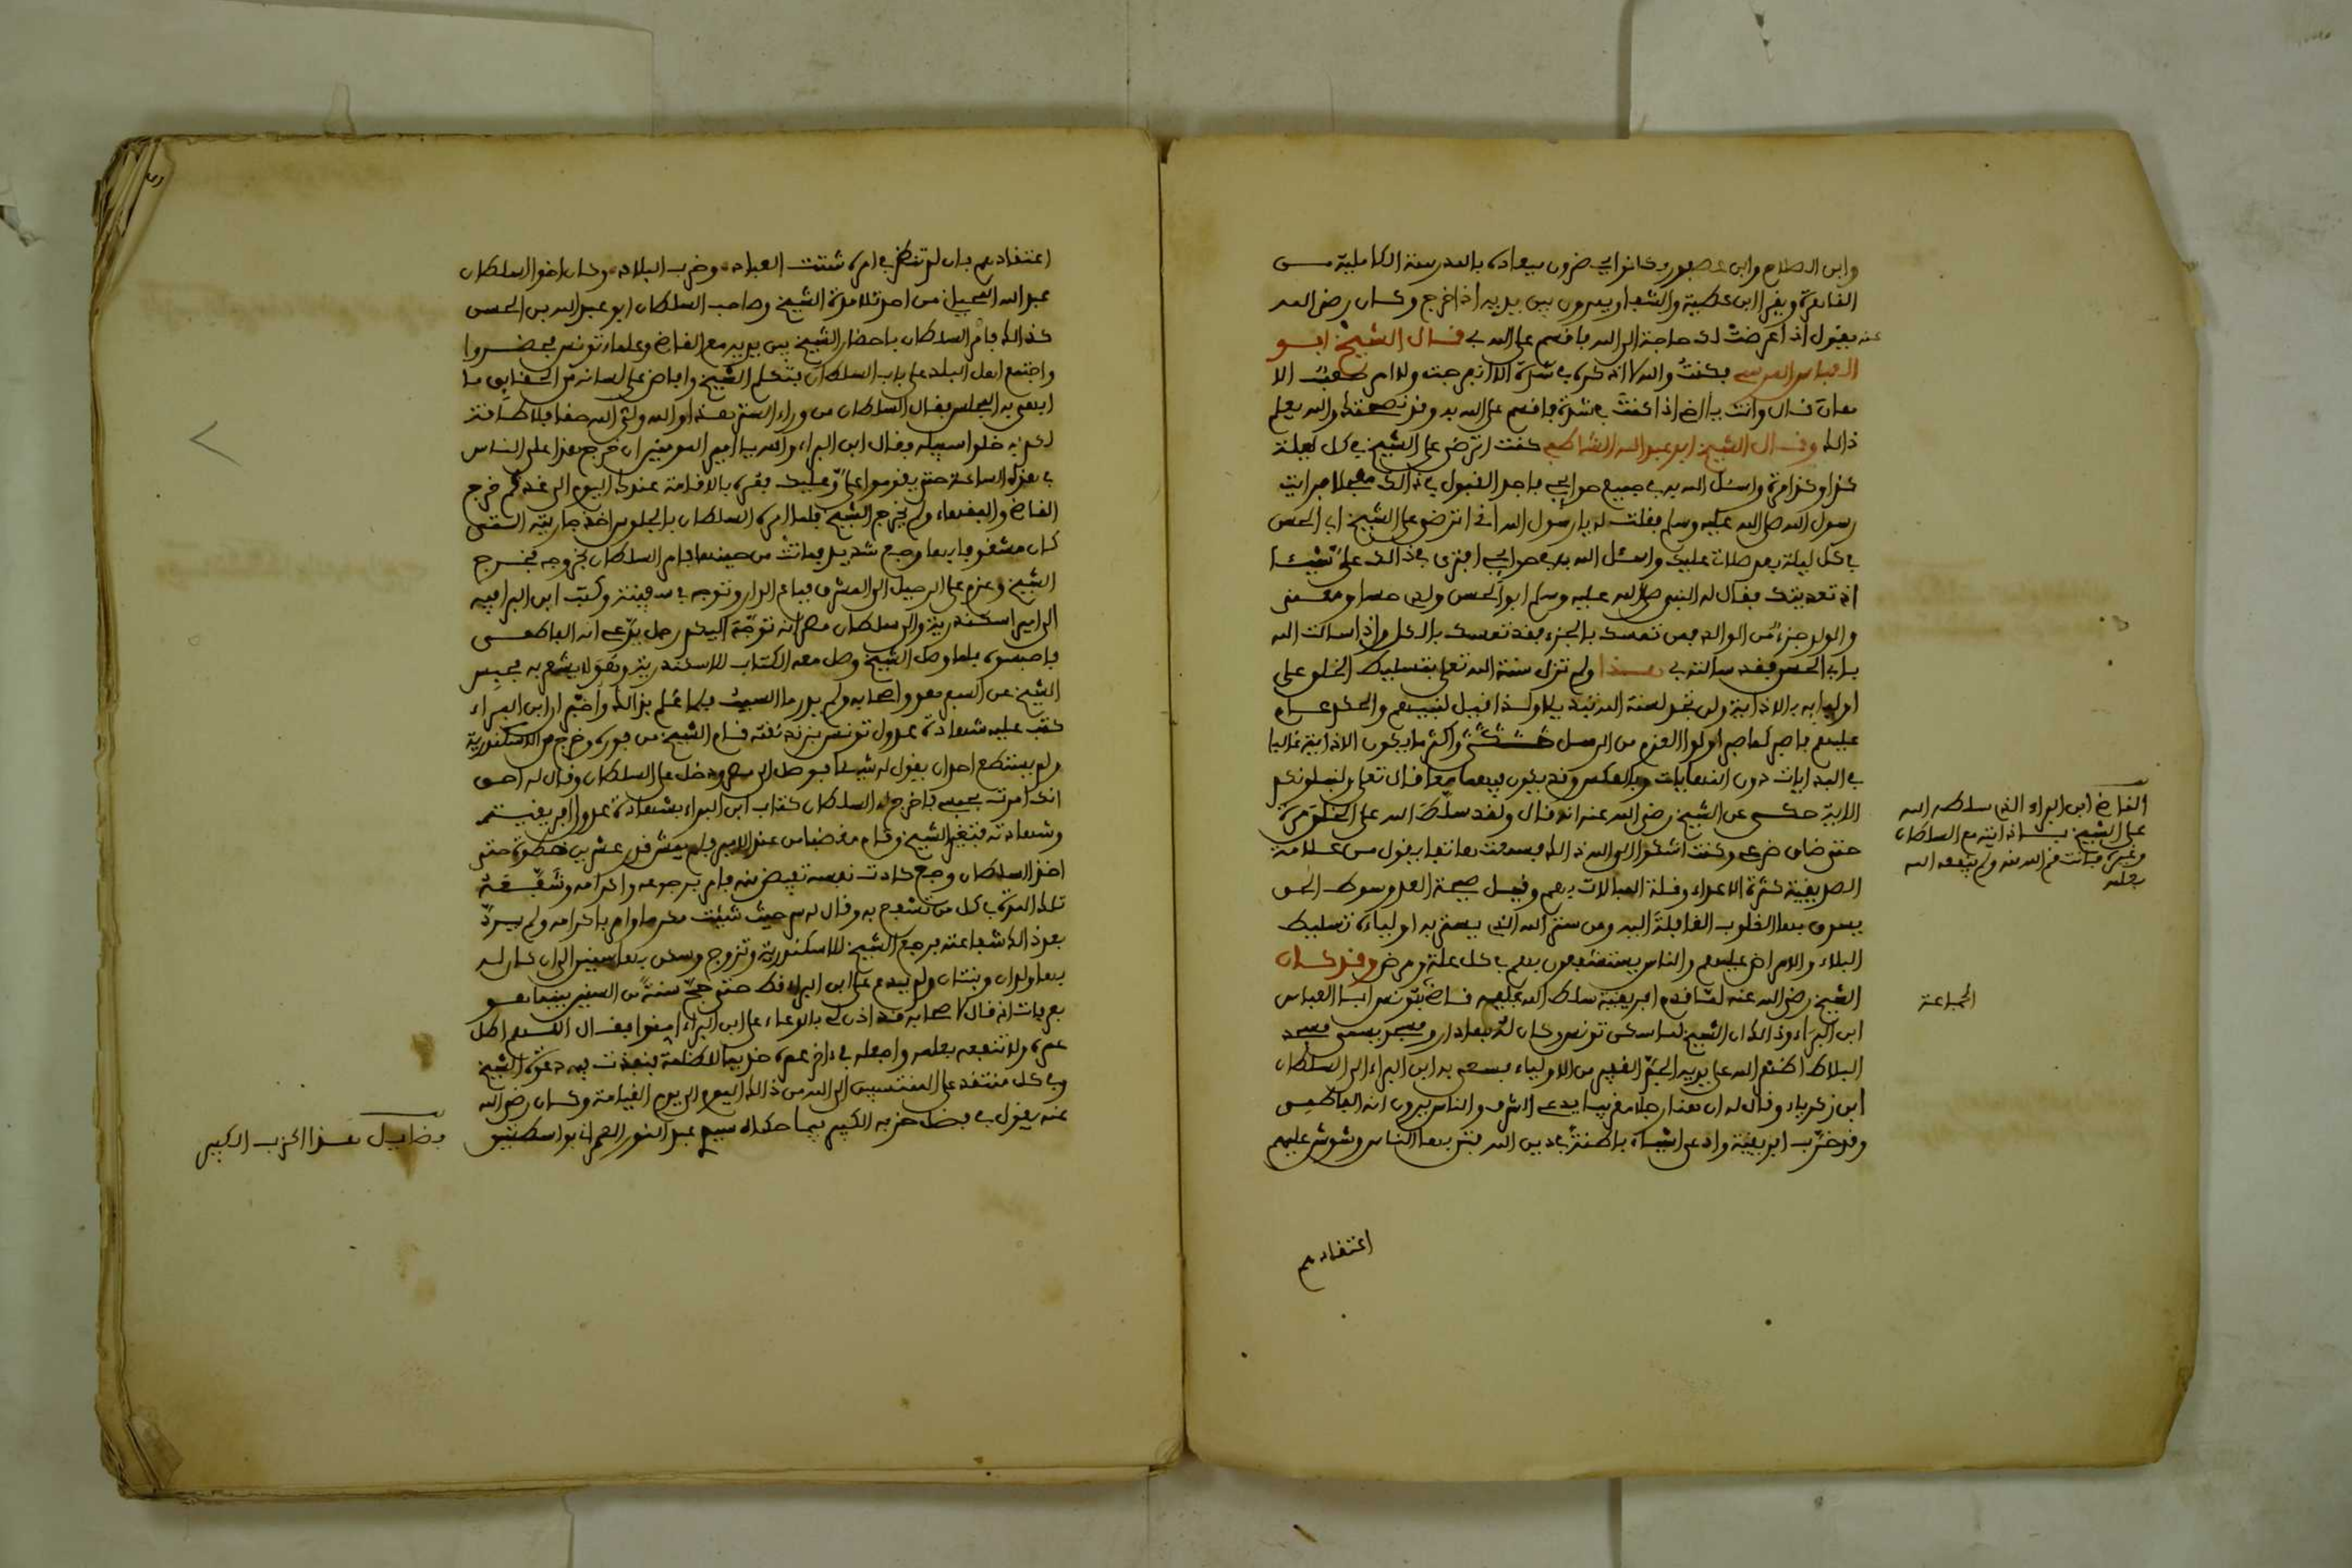 وابن الصلاح وابن عصفور وكانوا يحضرون ميعاده بالمدرسة الكاملية من
القاهرة ويقرا ابن عطية والشفا ويمرون بين يديه اذا خرج وكان رضي الله
عنه يقول اذا عرضت لك حاجة الى الله فاقسم على الله بي قال الشيخ ابو
العباس المرسي فكنت والله لا اذكره في شدة الا انفرجت ولا امر صعب الا
هان قال وانت يا اخي اذا كنت في شدة فاقسم على الله به وقد نصحتك والله يعلم
ذالك وقال الشيخ ابو عبد الله الشاطبي كنت اترضى على الشيخ في كل ليلة
كذا وكذا مرة واسئل الله به في جميع حوايجي فاجد القبول في ذالك معجلا فرايت
رسول الله صلى الله عليه وسلم فقلت له يا رسول الله اني اترضى على الشيخ ابي الحسن
في كل ليلة بعد صلاتي عليك واسئل الله به في حوايجي افترى في ذالك علي شيئا
اذ تعديتك فقال له النبي صلى الله عليه وسلم ابو الحسن ولدي حسا ومعنى
والولد جزء من الوالد فمن تمسك بالجزء فقد تمسك بالكل واذا سالت الله
بابي الحسن فقد سالته بي هذا ولم تزل سنة الله تعلى بتسليط الخلق على
اوليايه بالاذاية ولن تجد لسنة الله تبديلا وكذا قيل لنبيهم والحكم عام
عليهم فاصبر كما صبر اولوا العزم من الرسل واكثر ما يكون الاذاية غالبا
في البدايات دون النهايات وبالعكس وقد يكون فيهما معا قال تعلى ولنبلونكم
الاية حكي عن الشيخ رضي الله عنه انه قال ولقد سلط الله علي الخلق مرة
حتى ضاق ذرعي وكنت اشكوا الى الله ذالك فسمعت هاتفا يقول من علامة
الصديقية كثرة الاعداء وقلة المبالات بهم وقيل صيحة العدو سوط الحق
يسوق بها القلوب الغافلة اليه ومن سنة الله التي يستر به اولياءه تسليط
البلاء والامراض عليهم والناس يستشفعون بهم في كل علة ومرض وقد كان
الشيخ رضي الله عنه لما قدم افريقية سلط الله عليه قاضي بتونس ابا العباس
ابن البراء وذالك ان الشيخ لما سكن تونس وكان له بها دار ومسجد يسمى مسجد
البلاط اظهر الله على يديه الجم الغفير من الاولياء فسعى به ابن البراء الى السلطان
ابن زكرياء وقال له ان هذا رجلا مغربيا يدعي الشرف والناس يرون انه الفاطمي
وقد خرب افريقية وادعى اشياء باطنة في دين الله فتن بها الناس وشوش عليهم
القاضي ابن البراء الذي سلطه الله
على الشيخ باذايته مع السلطان
وغيره فانتقم الله منه ولم ينفعه الله
بعلمه
الجماعة
اعتقادهم
اعتقادهم فان لم تنظر في امره شتت العباد وخرب البلاد وكان اخوا السلطان
عبد الله اللحياني من احد تلامذة الشيخ وصاحب السلطان ابو عبد الله بن الحسن
كذالك فامر السلطان باحضار الشيخ بين يديه مع القاضي وعلماء تونس فحضروا
واجتمع اهل البلد على باب السلطان فتكلم الشيخ وافاض على لسانه من الحقايق ما
ابهى به المجلس فقال السلطان من وراء الستر هذا والله ولي الله حقا فلا طاقة
لكم به خلوا سبيله فقال ابن البراء والله يا امير المومنين ان خرج هذا على الناس
في هذه الساعة حتى يقوموا علي وعليك فمره بالاقامة عندك اليوم الى غد ثم خرج
القاضي والفقهاء ولم يخرج الشيخ فلما امره السلطان بالجلوس اخذ جاريته التي
كان مشغوفا بها وجع شديد فماتت من حينها فامر السلطان بخروجه فخرج
الشيخ وعزم على الرحيل الى المشرق فباع الدار وتوجه في سفينة وكتب ابن البرا فيه
الى امير اسكندرية والى سلطان مصر انه توجه اليكم رجل يدعي انه الفاطمي
فاحبسوه فلما وصل الشيخ وصل معه الكتاب للاسكندرية وهو لا يشعر به فحبس
الشيخ عن السفر هو واصحابه ولم يدر ما السبب فلما علم بذالك واخبر ان ابن البراء
كتب عليه شهادة عدول تونس بزندقته قام الشيخ من فوره وخرج من الاسكندرية
ولم يستطع احد ان يقول له شيئا فوصل الى مصر ودخل على السلطان وقال له احق
انك امرت بحبسي فاخرج له السلطان كتاب ابن البراء بشهادة عدول افريقية
وشهادته فتغير الشيخ وقام مغضبا من عند الامير فلم يمش قدر عشرين خطوة حتى
اخذ السلطان وجع كادت نفسه تفيض منه فامر برجوعه واكرامه وشفعه
تلك المرة في كل من تشفع به وقال له سر حيث شئت مكرما وامر باكرامه ولم يرد
بعد ذالك شفاعته فرجع الشيخ للاسكندرية وتزوج وسكن بها سنين الى ان كان له
بها ولدان وبنتان ولم يدع على ابن البراء قط حتى حج سنة من السنين فبينما هو
بعرفات اذ قال لاصحابه قد اذن لي بالدعاء على ابن البراء امنوا فقال اللهم اطل
عمره ولا تنفعه بعلمه واجعله في اخر عمره خديما للظلمة فنفذت فيه دعوة الشيخ
وفي كل منتقد على المنتسبين الى الله من ذالك اليوم الى يوم القيامة وكان رضي الله
عنه يقول في فضل حزبه الكبير فيما حكاه سيدي عبد النور العمراني بواسطتين
فضايل هذا الحزب الكبير